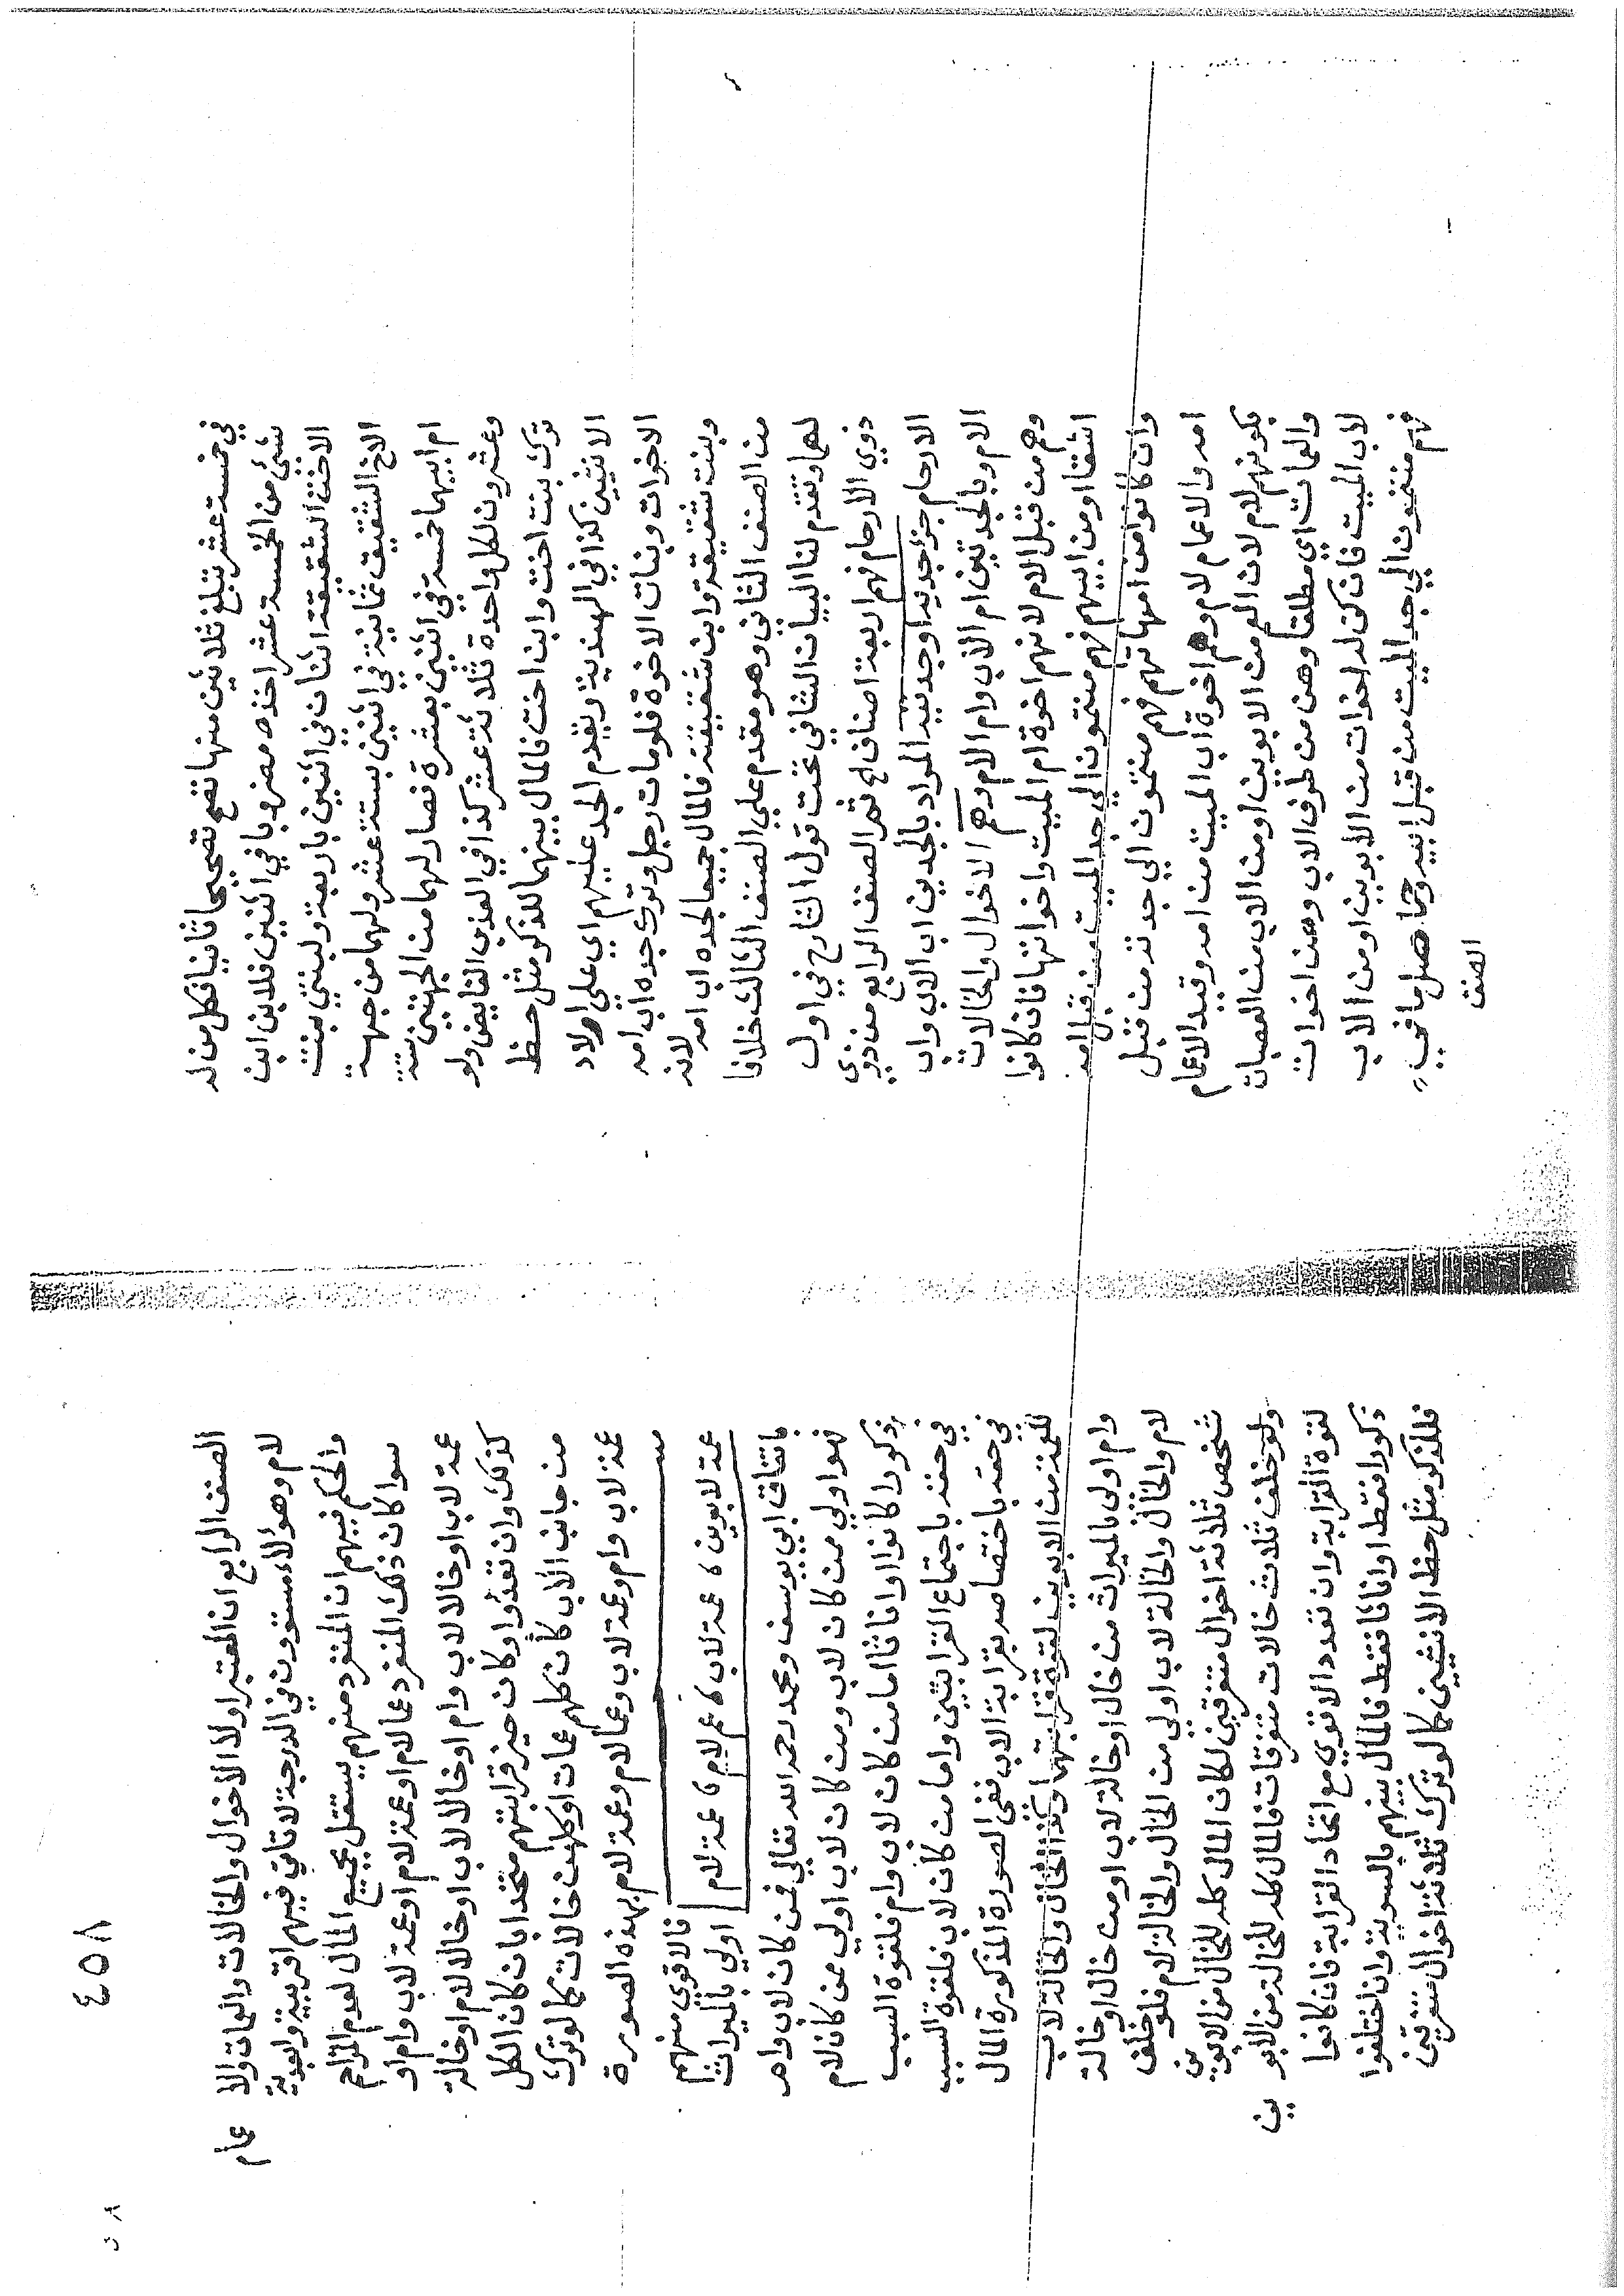 في خمسة عشر تبلغ ثلاثين منها تصح تصحيحا ثانيا فكل من له
شيئ من الخمسة عشر اخذه مضروبا في اثنين فلابن ابن
الاخت الشقيقة اثنان في اثنين باربعة ولبنتي بنت
الاخ الشقيق ثمانية في اثنين بستة عشر ولهما من جهة
ام ابيهما خمسة في اثنين بعشرة فصار لهما من الجهتين ستة
وعشرون لكل واحدة ثلاثة عشر كذا في العذب الفايض ولو
ترك بنت اخت وابن اخت فالمال بينهما للذكر مثل حظ
الانثيين كذا في الهندية ويقدم الجد عليهم اي علي اولاد
الاخوات وبنات الاخوة فلو مات رجل وترك جده اب امه
وبنت شقيقته وابن شقيقته فالمال جميعا لجده اب امه لانه
من الصنف الثاني وهو مقدم علي الصنف الثالث خلافا
لهما وتقدم لنا البيان الشافي تحت قول الشارح في اول
ذوي الارحام فهم اربعة اصناف الخ ثم الصنف الرابع من ذوي
الارحام جزؤ جديه او جدتيه المراد بالجدين اب الاب واب
الام وبالجدتين ام الاب وام الام وهم الاخوال والخالات
وهم من قبل الام لانهم اخوة ام الميت واخواتها فان كانوا
اشقا او من ابيهم فهم منتمون الي جد الميت من قبل امه
وان كانوا من امهاتهم فهم منتمون الي جدته من قبل
امه والاعمام لام وهم اخوة اب الميت من امه وقيد الاعمام
بكونهم لام لان العم من الابوين او من الاب من العصبات
والعمات اي مطلقا وهن من طرف الاب وهن اخوات
لاب الميت فان كن له اخوات من الابوين او من الاب
فهم منتمون الي جد الميت من قبل ابيه وحاصل ما في
الصنف
٤٥٨
الصنف الرابع ان المعتبر اولا الاخوال والخالات والعمات والاعمام
لام وهولاء مستوون في الدرجة لا تاتي فيهم اقربية وابعدية
والحكم فيهم ان المنفرد منهم يستقل بجميع المال لعدم المزاحم
سوا كان ذلك المنفرد عما لام او عمة لام او عمة لاب وام او
عمة لاب او خالا لاب وام او خالا لاب او خالا لام او خالة
كذلك وان تعددوا وكان حيز قرابتهم متحدا بان كان الكل
من جانب الاب كأن كلهم عمات او كلهن خالات كما لو ترك
عمة لاب وام وعمة لاب وعما لام وعمة لام بهذه الصورة
مـــ
عمة لابوين ، عمة لاب ، عم لام ، عمة لام
فالاقوي منهم
اولي بالميراث
باتفاق ابي يوسف ومحمد رحمه الله تعالي فمن كان لاب وام
فهو اولي ممن كان لاب ومن كان لاب اولي ممن كان لام
ذكورا كانوا او اناثا اما من كان لاب وام فلقوة السبب
في حقه باجتماع القرابتين واما من كان لاب فلقوة السبب
في حقه باختصاصه بقرابة الاب ففي الصورة المذكورة المال
للعمة من الابوين لقوة قرابتها وكذا الخال والخالة لاب
وام اولي بالميراث من خال او خالة لاب او من خال او خالة
لام والخال والخالة لاب اولي من الخال والخالة لام فلو خلف
شخص ثلاثة اخوال متفرقين لكان المال كله للخال من الابوين
ولو خلف ثلاث خالات متفرقات فالمال كله للخالة من الابوين
لقوة القرابة وان تعدد الاقوي مع اتحاد القرابة فان كانوا
ذكورا فقط او اناثا فقط فالمال بينهم بالسوية وان اختلفوا
فللذكر مثل حظ الانثيين كما لو ترك ثلاثة اخوال متفرقين